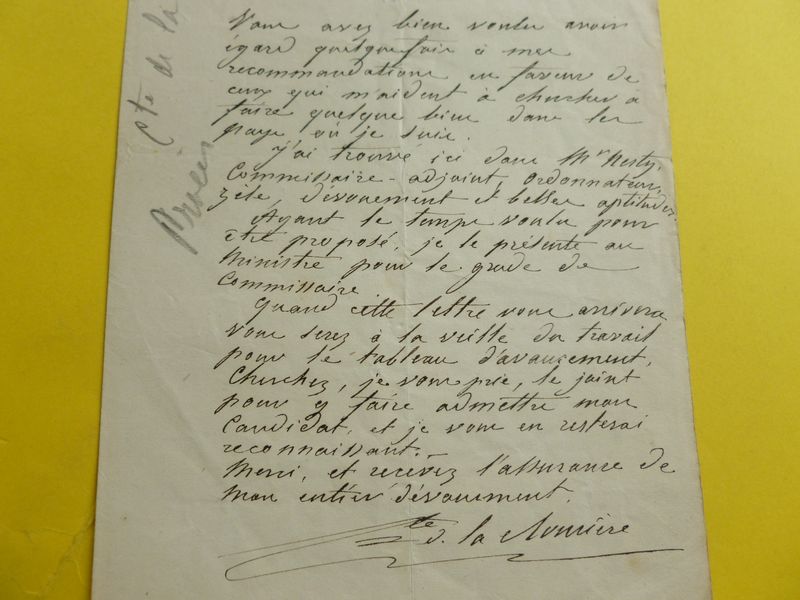 Vous avez bien voulu avoir
égard quelquefois à mes
recommandations en faveur de
ceux qui m'aident à chercher à
faire quelque bien dans les
pays où je suis.
J'ai trouvé ici dans Mr
Commissaire-adjoint, ordonnateur,
zèle, dévouement et belles aptitudes.
Ayant le temps voulu pour
être proposé, je le présente au
Ministre pour le grade de
Commissaire
Quand cette lettre vous arrivera
vous serez à la veille du travail
pour le tableau d'avancement,
Cherchez, je vous prie, le joint
pour y faire admettre mon
Candidat, et je vous en resterai
reconnaissant.
Merci, et recevez l'assurance de
mon entier dévouement.
Cte de la